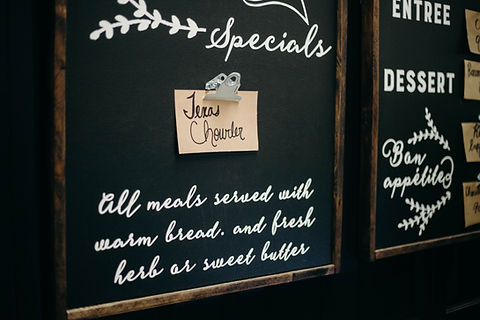 Specials
Texas
Chowder
All meals served with
warm bread. and fresh
herb or sweet butter
ENTREE
DESSERT
Bon
appétite